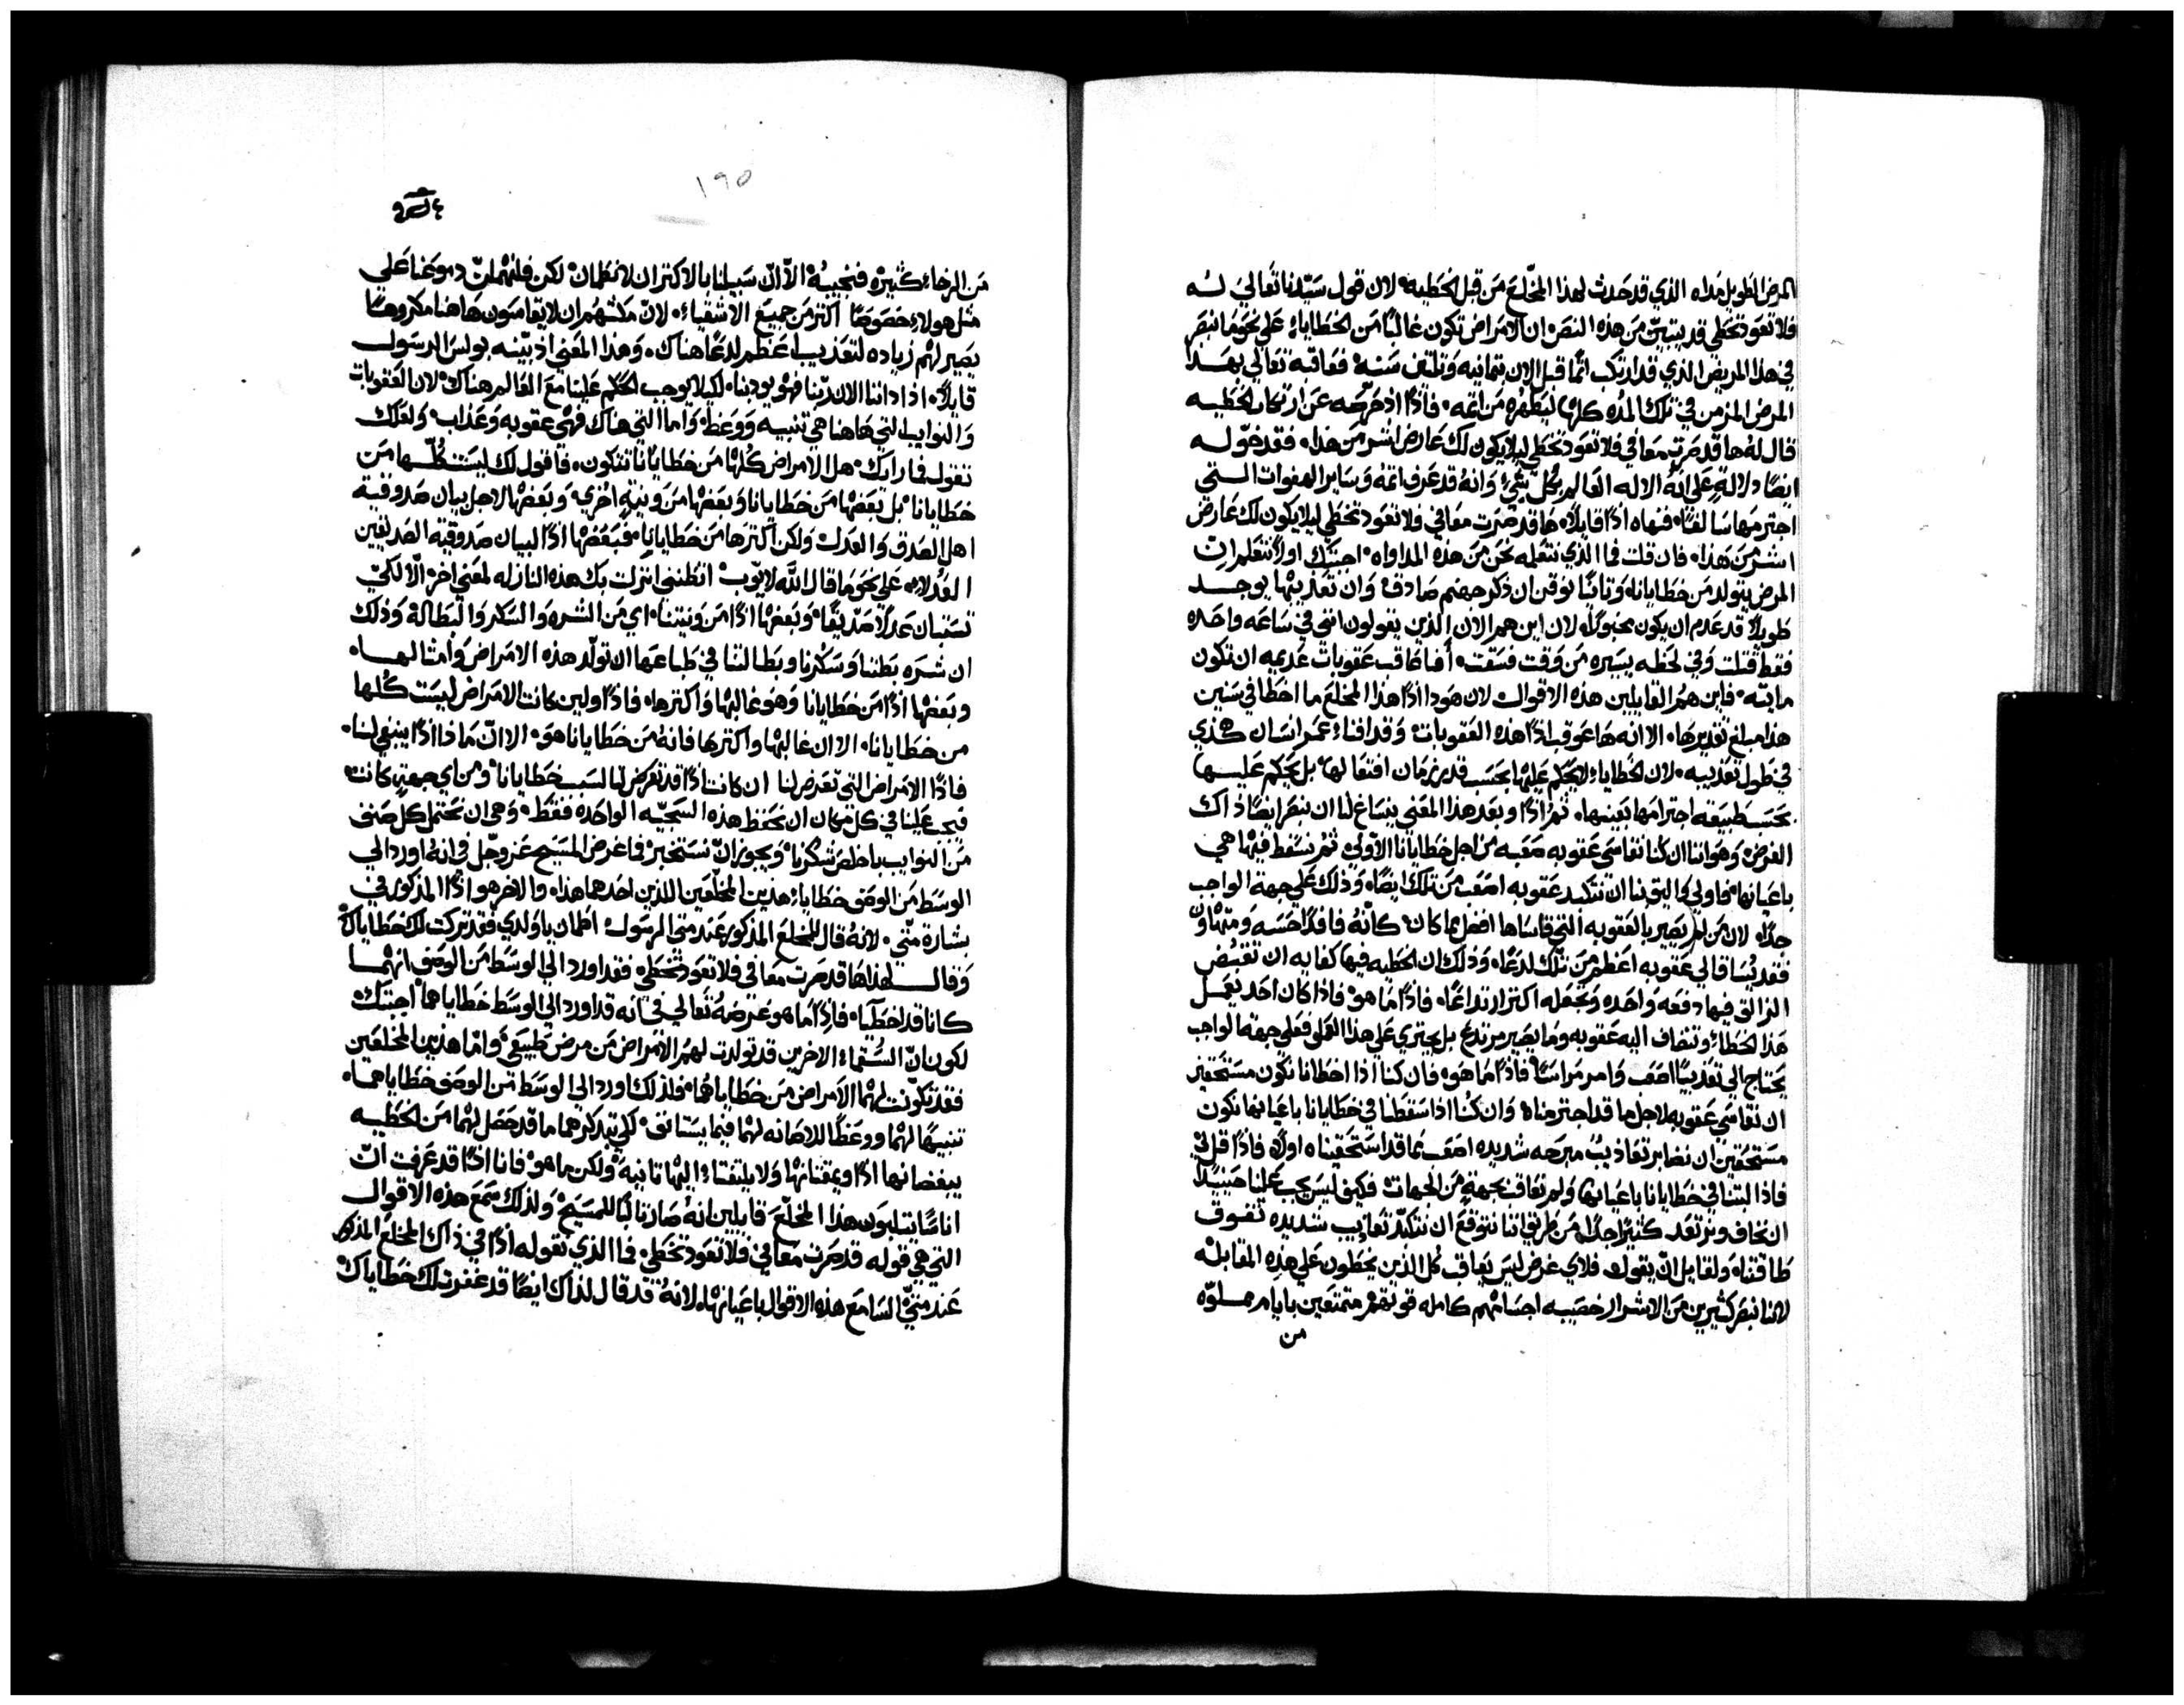 المرض الطويل مداه الذي قد حدث لهذا المخلّع من قبل الخطيه لان قول سيّدنا تعالي له
فلا تعود تخطي قد يتبيّن من هذه النص ان الامراض تكون غالبًا من الخطاياء علي نحو ما نبصر
في هذا المريض الذي قد ارتكب اثمًا قبل الان بثمانيه وثلثين سنه فعاقبه تعالي بهذا
المرض المزمن في تلك المده كلها ليطهره من اثمه فاذًا اذ خرجه عن ارتكاب الخطيه
قال له ها قد صرت معافي فلا تعود تخطي ليلا يكون لك عارض اشر من هذا فقد خوّله
ايضًا دلالةٍ علي انه الاله العالم بكل شيٍ وانه قد عرف اثمه وساير الهفوات التي
اجترمها سالفًا فنهاه اذًا قايلاً ها قد صرت معافي فلا تعود تخطي ليلا يكون لك عارض
اشر من هذا فان قلت فما الذي نتعلمه نحن من هذه المداواه اجبتك اولاً نتعلم ان
المرض يتولد من خطايانا وثانيًا نوقن ان ذكر جهنم صادق وان تعذيبها يوجد
طويلاً قد عدم ان يكون محبوكًا لان اين هم الان الذين يقولون انني في ساعه واحده
فقط قتلت وفي لحظه يسيره من وقت فسقت أفاعاقب عقوبات عديمه ان تكون
مايته فاين هم القايلين هذه الاقوال لان هودا اذًا هذا المخلع ما اخطا في سنين
هذا مبلغ تقديرها الا انه ها عوقب اذًا هذه العقوبات وقد افناء عمر انسان هكذي
في طول تعذيبه لان الخطاياء لا يحكم عليها بحسب قدر زمان افتعالها بل يحكم عليها
بحسب طبيعه اجترامها بعينها ثم اذًا وبعد هذا المعني ينساغ لنا ان نبصر ايضًا ذاك
الغرض وهو اننا ان كنا نقاسي عقوبه صعبه من اجل خطايانا الاولي ثم نسقط فيها هي
باعيانها فاولي واليق بنا ان نتكبد عقوبه اصعب من تلك ايضًا وذلك علي جهة الواجب
جدًا لان من لم يصير بالعقوبه التي قاساها افضل مما كان كأنه فاقدًا حسه ومتهاون
فقد يُساق الي عقوبه اعظم من تلك لدغًا وذلك ان الخطيه فيها كفايه ان تقبض
الزالق فيها دفعه واحده وتجعله اكثر ارتداعًا فاذًا ما هو فاذا كان احد يعمل
هذا الخطاء وتنضاف اليه عقوبه وما يصير مرتدع بل يجتري علي هذا العمل فعلي جهة الواجب
يحتاج الي تعذيبًا اصعب وامر مراسًا فاذًا ما هو فان كنا اذا اخطانا نكون مستحقين
ان نقاسي عقوبه لاجل ما قد اجترمناه وان كنا اذا سقطنا في خطايانا باعيانها نكون
مستحقين ان نصابر تعاذيبًا مبرحه شديده اصعب مما قد استحقيناه اولاً فاذًا قل لي
فاذا لبثنا في خطايانا باعيانها ولم نعاقب بجهةٍ من الجهات فكيف ليس يجب علينا حينيذٍ
ان نخاف ونرتعد كثيرًا جدًا من طريق اننا نتوقع ان نتكبّد تعاذيب شديده تفوق
طاقتنا ولقايل ان يقول فلاي غرض ليس يعاقب كل الذين يخطون علي هذه المقابله
لاننا نبصر كثيرين من الاشرار خصيبه اجسامهم كامله قوتهم متمتعين بايام مملوّه
من
١٩٥
من الرخاء كثيره فنجيبهُ الاّ ان سبيلنا بالاكثر ان لا نطمان لكن فلنهملن دموعنا علي
مثل هولاء خصوصًا اكثر من جميع الاشقياء لان مكثهم ان لا يقاسون هاهنا مكروهًا
يصير لهم زياده لتعذيب اعظم لدغًا هناك وهذا المعني اذ بيّنه بولس الرسول
قايلاً اذا داننا الان ربّنا فهو يودبنا لكيلا يوجب الحكم علينا مع العالم هناك لان العقوبات
والنوايب التي هاهنا هي تنبيه ووعظ واما التي هناك فهي عقوبه وعذاب ولعلك
تقول فما رايك هل الامراض كلها من خطايانا تتكون فاقول لك ليست كلّها من
خطايانا بل بعضها من خطايانا وبعضها من ونيةٍ اخري وبعضها لاجل بيان صدوقية
اهل الصدق والعدل ولكن اكثرها من خطايانا فبعضها اذًا لبيان صدوقية الصديقين
العدلاء علي نحو ما قال الله لايّوب اتظنني انزلت بك هذه النازله لمعني اخر الاّ لكي
تستبان عدلاً صدّيقًا وبعضها اذًا من ونيتنا اي من الشره والسكر والبطاله وذلك
ان شره بطننا وسكرنا وبطالتنا في طباعها ان تولّد هذه الامراض وامثالها
وبعضها اذًا من خطايانا وهو غالبها واكثرها فاذًا ولين كانت الامراض ليست كلها
من خطايانا الا ان غالبها واكثرها فانه من خطايانا هو الا ان ماذا اذًا ينبغي لنا
فاذًا الامراض التي تعرض لنا ان كانت اذًا قد تعرض لنا لسبب خطايانا ومن اي جهةٍ كانت
فيجب علينا في كل مكان ان نحفظ هذه السجيّه الواحده فقط وهي ان نحتمل كل صنف
من النوايب باخلص شكرنا ويجوز ان نستخبر فما غرض المسيح عز وجل في انه اورد الي
الوسط من الوصف خطاياء هذين المخلعين اللذين احدهما هذا والاخر هو اذًا المذكور في
بشارة متّي لانه قال للمخلع المذكور عند متي الرسول اطمان يا ولدي فقد تركت لك خطاياك
وقال لهذا ها قد صرت معافي فلا تعود تخطي فقد اورد الي الوسط من الوصف انهما
كانا قد اخطياء فاذًا ما هو غرضهُ تعالي في أنه قد اورد الي الوسط خطاياهما اجبتك
لكون انّ السُقماء الاخرين قد تولدت لهم الامراض من مرض طبيعي وامّا هذين المخلعين
فقد تكوّنت لهُما الامراض من خطاياهما فلذلك اورد الي الوسط من الوصف خطاياهما
تنبيهًا لهما ووعظًا للاهانه لهما فيما يستانف لكي يتدكرهما ما قد حصل لهُما من الخطيه
يبغضانها اذًا ويمقتانها ولا يلتفتاء اليها ثانيه ولكن ما هو فانا اذًا قد عرفت ان
اناسًا يثلبون هذا المخلّع قايلين انه صار ثالبًا للمسيح ولذلك سمع هذه الاقوال
التي هي قوله قد صرت معافي فلا تعود تخطي فما الذي تقوله اذًا في ذاك المخلع المذكور
عند متيّ السامع هذه الاقوال باعيانها لانه قد قال لذاك ايضًا قد غفرت لك خطاياك